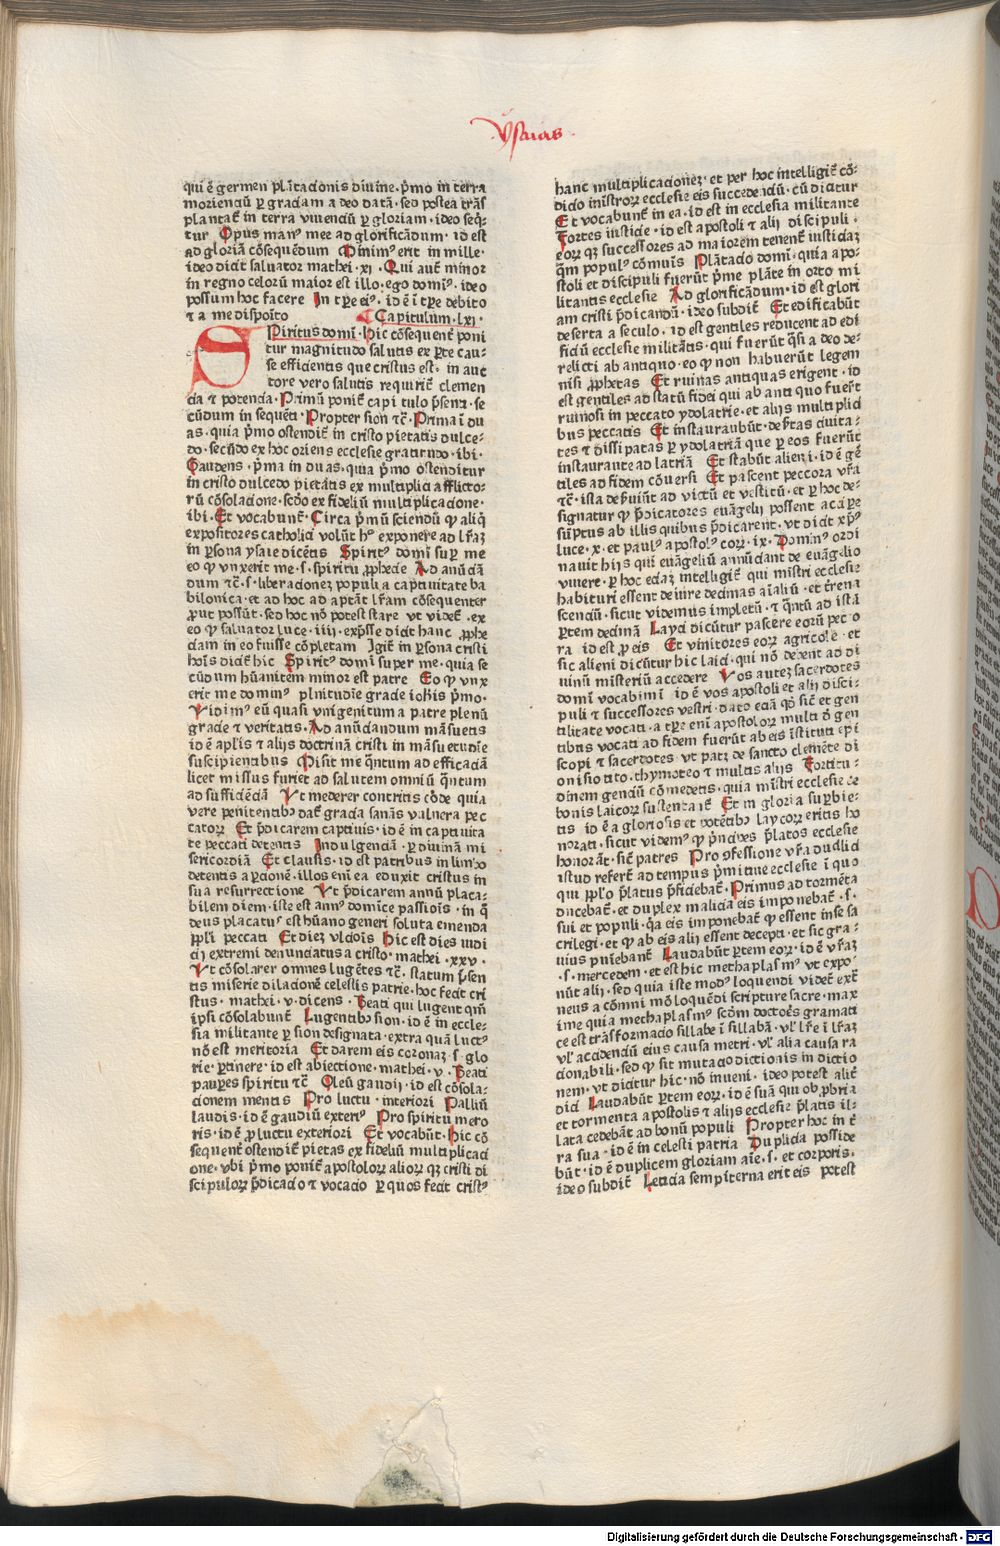 Ysaias
qui ē germen plātacionis divine · pͥmo in terra
moriendū ꝑ graciam a deo datā · sed postea trās
plantat᷑ in terra vivenciū ꝑ gloriam · ideo seq̄-
tur Opus manꝰ mee ad glorificādum · id est
ad gloriā cōsequēdum Minimꝰ erit in mille ·
ideo dicit saluator mathei · xj · Qui aut̄ minor
in regno celorū maior est illo · ego domīꝰ · ideo
possum hoc facere In tꝑe eiꝰ · id ē ī tꝑe debito
⁊ a me disposito Capitulum · lxj ·
SPiritus domī · Hic cōsequent᷑ poni
tur magnitudo salutis ex ꝑte cau-
se efficientis que cristus est · in auc
tore vero salutis requirit᷑ clemen
cia ⁊ potencia · Primū ponit᷑ capitulo p̄senti · se
cūdum in sequēti · Propter sion ⁊c̄ · Prima ī du
as · quia pͥmo ostendit᷑ in cristo pietatis dulce-
do · secūdo ex hoc oriens ecclesie gratitudo · ibi ·
Gaudens · pͥma in duas · quia pͥmo ostenditur
in cristo dulcedo pietatis ex multiplici afflicto-
rū cōsolacione · scd̄o ex fideliū multiplicacione ·
ibi · Et vocabunt᷑ · Circa pͥmū sciendū ꝙ aliqͥ
expositores catholici volūt hͦ exponere ad lr̄az
in ꝑsona ysaie dicētis Spiritꝰ domī suꝑ me
eo ꝙ vnxerit me · s · spiritu ꝓphecie Ad anūciā
dum ⁊c̄ · s · liberacionez populi a captiuitate ba
bilonica · et ad hoc ad aptāt lr̄am cōsequenter
ꝓut possūt · sed hoc nō potest stare vt videt᷑ · ex
eo ꝙ saluator luce · iiij · exp̄sse dicit hanc ꝓphe
ciam in eo fuisse cōpletam Igit᷑ in ꝑsona cristi
hoīs dicit᷑ hic Spiritꝰ domī super me · quia se
cūdum hūanitem minor est patre Eo ꝙ vnx
erit me dominꝰ plnitudīe gracie iohis pͥmo ·
Vidimꝰ eū quasi vnigenitum a patre plenū
gracie ⁊ veritatis · Ad anūciandum māsuetis
id ē apl̄is ⁊ alijs doctrinā cristi in māsuetudīe
suscipientibus Misit me qͣntum ad efficaciā
licet missus fuerit ad salutem omniū qͣntum
ad sufficiēciā Vt mederer contritis cōde quia
vere penitentibꝰ dat᷑ gracia sanās vulnera pec
catoꝝ Et p̄dicarem captiuis · id ē in captiuita
te peccati detentis Indulgenciā · ꝑ diuinā mi
sericordiā Et clausis · id est patribus in limbo
detentis aꝑcionē · illos enī ea eduxit cristus in
sua resurrectione Vt p̄dicarem annū placa-
bilem diem · iste est annꝰ domīce passiōis · in q̄
deus placatuꝰ est hūano generi soluta emenda
ꝓpl̄i peccati Et diez vlciōis Hic est dies iudi
cij extremi denunciatus a cristo · mathei · xxv ·
Vt cōsolarer omnes lugētes ⁊c̄ · statum p̄sen
tis miserie dilacionē celestis patrie · hoc fecit cri
stus · mathei · v · dicens · Beati qui lugent qm̄
ipsi cōsolabunt᷑ Lugentibꝰ sion · id ē in eccle-
sia militante ꝑ sion designata · extra quā luctꝰ
nō est meritoria Et darem eis coronaz · s · glo
rie · ꝑ tinere · id est abiectione · mathei · v · Beati
pauꝑes spiritu ⁊c̄ Oleū gaudij · id est cōsola-
cionem mentis Pro luctu · interiori Palliū
laudis · id ē gaudiū exteriꝰ Pro spiritu mero
ris · id ē ꝓ luctu exteriori Et vocabūt᷑ · Hic cō
sequent᷑ ostendit᷑ pietas ex fideliū multiplicaci
one · vbi pͥmo ponit᷑ apostoloꝝ alioꝝ qꝫ cristi di
scipuloꝝ p̄dicacio ⁊ vocacio ꝑ quos fecit cristꝰ
hanc multiplicacionez · et per hoc intelligit᷑ cō-
dicio mīstroꝝ ecclesie eis succedenciū · cū dicitur
Et vocabunt᷑ in ea · id est in ecclesia militante
Fortes iusticie · id est apostoli ⁊ alij discipuli ·
eoꝝ qꝫ successores ad maiorem tenent᷑ iusticiaz
qͣm populꝰ cōmuis Plātacio domī · quia apo-
stoli et discipuli fuerūt pͥme plāte in orto mi
litantis ecclesie Ad glorificādum · id est glori
am cristi p̄dicandū · ideo subdit᷑ Et edificabūt
deserta a seculo · id est gentiles reducent ad edi
ficiū ecclesie militātis · qui fuerūt qͣsi a deo de-
relicti ab antiquo · eo ꝙ non habuerūt legem
nisi ꝓphetas Et ruinas antiquas erigent · id
est gentiles ad statū fidei qui ab antiquo fuer̄t
ruinosi in peccato ydolatrie · et alijs multiplici
bus peccatis Et instaurabūt · des̄tas ciuita-
tes ⁊ dissipatas ꝑ ydolatriā que ꝑ eos fuerūt
instaurate ad latriā Et stabūt alieni · id ē gē
tiles ad fidem cōuersi Et pascent peccora vr̄a
⁊c̄ · ista des̄uiūt ad victū et vestitū · et ꝑ hoc de-
signatur ꝙ p̄dicatores euāgelij possent accipe
sūptus ab illis quibus p̄dicarent · vt dicit xp̄ꝰ
luce · x · et paulꝰ apostolꝰ coꝝ · ix · Dominꝰ ordi
nauit hijs qui euāgeliū annūciant de euāgelio
viuere · ꝑ hoc eciaz intelligit᷑ qui mīstri ecclesie
habituri essent de iure decimas aīaliū · et t̄rena
scenciū · sicut videmus impletū · ⁊ qͣntū ad istā
ꝑtem decimā Layci dicūtur pascere eorū peco
ra id est ꝓ eis Et vinitores eoꝝ agricole · et
sic alieni dicūtur hic laici · qui nō debent ad di
uinū misteriū accedere Vos autez sacerdotes
domī vocabimī id ē vos apostoli et alij disci-
puli ⁊ successores vestri · dato eciā ꝙ sīt et gen
tilitate vocati · a tꝑe enī apostoloꝝ multi ō gen
tibus vocati ad fidem fuerūt ab eis īstituti epī
scopi ⁊ sacerdotes vt patꝫ de sancto clemēte di
onisio tito · thymoteo ⁊ multis alijs Fortitu-
dinem genciū cōmedetis · quia mīstri ecclesie de
bonis laicoꝝ sustentant᷑ Et in gloria suꝑbie-
tis id ē a gloriosis et potētibꝰ laycoꝝ eritis ho
norati · sicut videmꝰ ꝙ pͥncipes p̄latos ecclesie
honorāt · sīc patres Pro ꝯfessione vr̄a duplici
istud refert᷑ ad tempus pͥmitiue ecclesie ī quo
qui ꝓpl̄o p̄latus p̄ficiebat᷑ · Primus ad tormēta
ducebat᷑ · et duplex malicia eis imponebat᷑ · s ·
sui et populi · qͥa eis imponebat᷑ ꝙ essent inse sa
crilegi · et ꝙ ab eis alij essent decepti · et sic gra-
uius puniebant᷑ Laudabūt ꝑtem eoꝝ · id ē vr̄az
· s · mercedem · et est hic methaplasmꝰ vt expo-
nūt alij · sed quia iste modꝰ loquendi videt᷑ ext᷑
neus a cōmni mō loquēdi scripture sacre · max
ime quia methaplasmꝰ scd̄m doctoēs gramati
ce est trāsformacio sillabe ī sillabā · vl̓ lr̄e ī lr̄az
vl̓ accidenciū eius causa metri · vl̓ alia causa ra
cionabili · sed ꝙ sit mutacio dictionis in dictio
nem · vt dicitur hic · nō inueni · ideo potest alit᷑
dici Laudabūt ꝑtem eoꝝ · id ē suā qui ob ꝓbria
et tormenta apostolis ⁊ alijs ecclesie p̄latis il-
lata cedebāt ad bonū populi Propter hoc in t᷑
ra sua · id ē in celesti patria Duplicia posside
būt · id ē duplicem gloriam aīe · s · et corporis ·
ideo subdit᷑ Leticia sempiterna erit eis potest
Digitalisierung gefördert durch die Deutsche Forschungsgemeinschaft · DFG